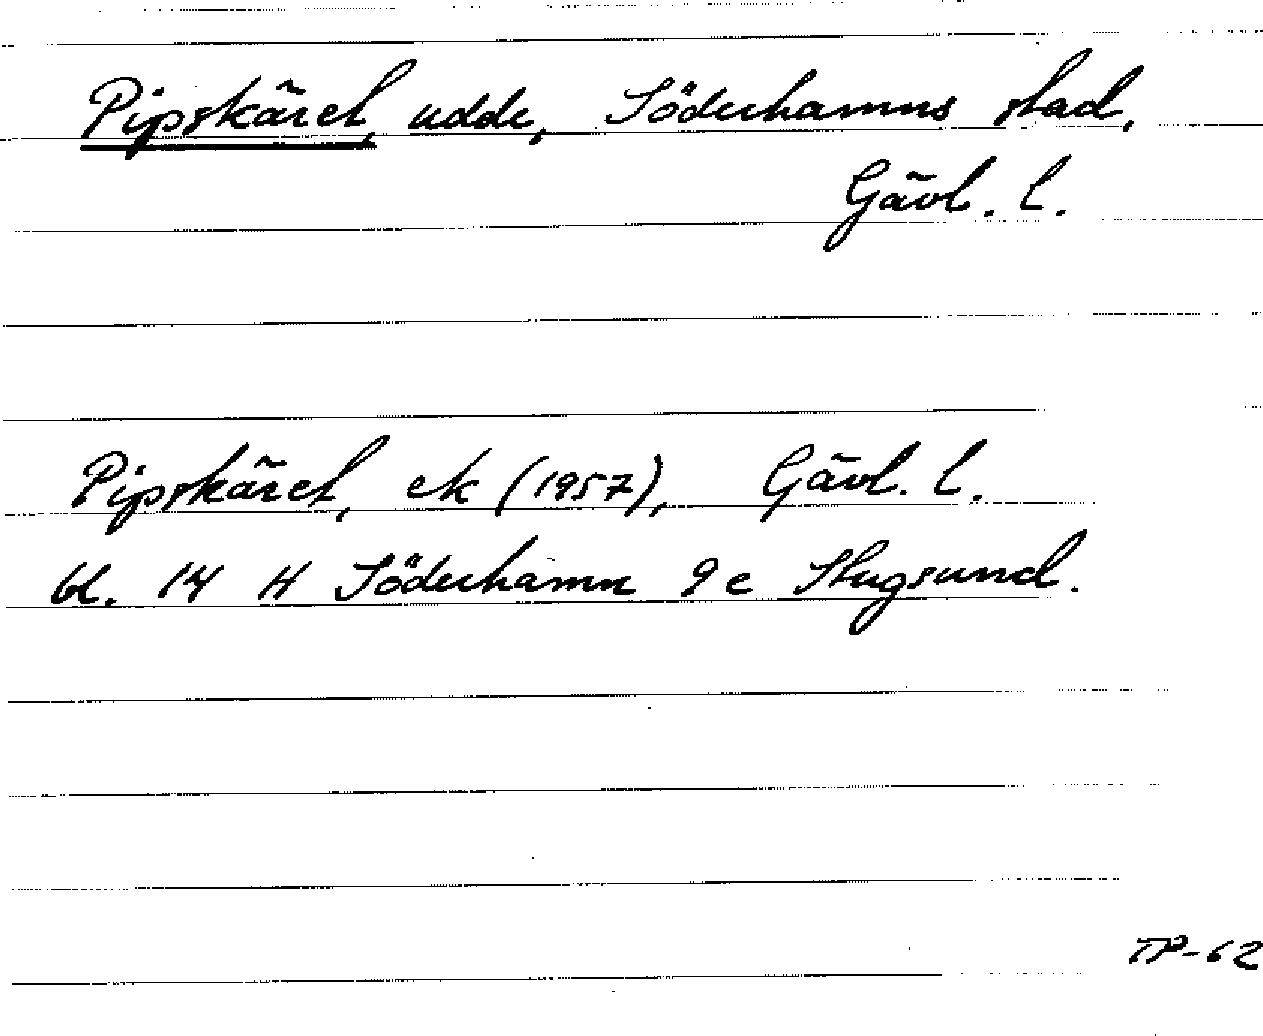 Pipskäret, udde, Söderhamns stad,
Gävl. l.
Pipskäret, ek (1957), Gävl. l.
bl. 14 H Söderhamn 9 e Stugsund.
TP-62